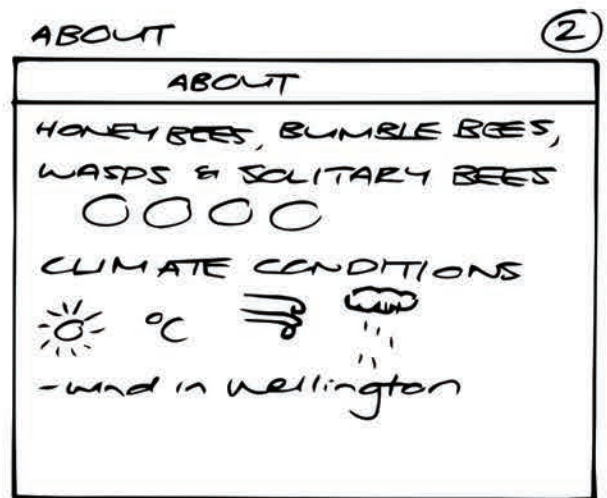 ABOUT
2
ABOUT
HONEY BEES, BUMBLE BEES,
WASPS & SOLITARY BEES
CLIMATE CONDITIONS
°C
-wind in wellington